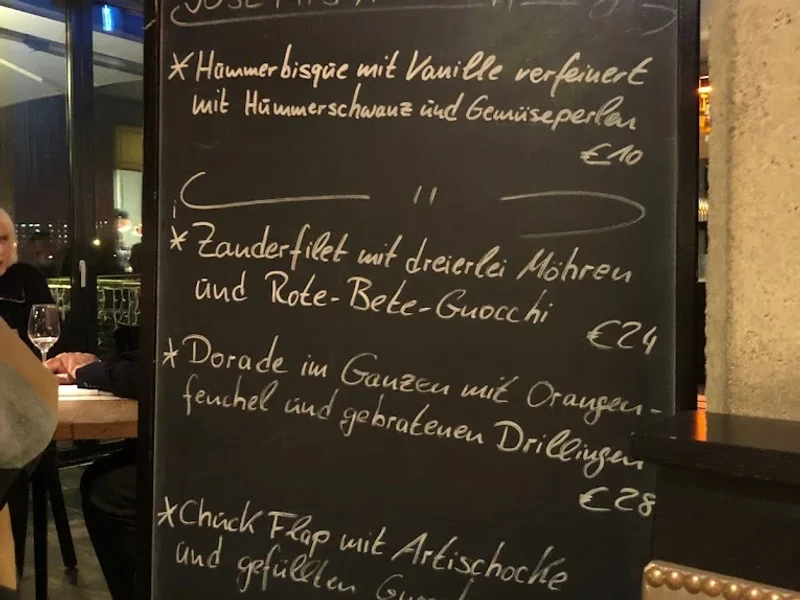 *Hummerbisque mit Vanille verfeinert
mit Hummerschwanz und Gemüseperlen
€10
*Zanderfilet mit dreierlei Möhren
und Rote-Bete-Gnocchi
€24
*Dorade im Ganzen mit Orangen-
fenchel und gebratenen Drillingen
€28
*Chuck Flap mit Artischocke
und gefüllten